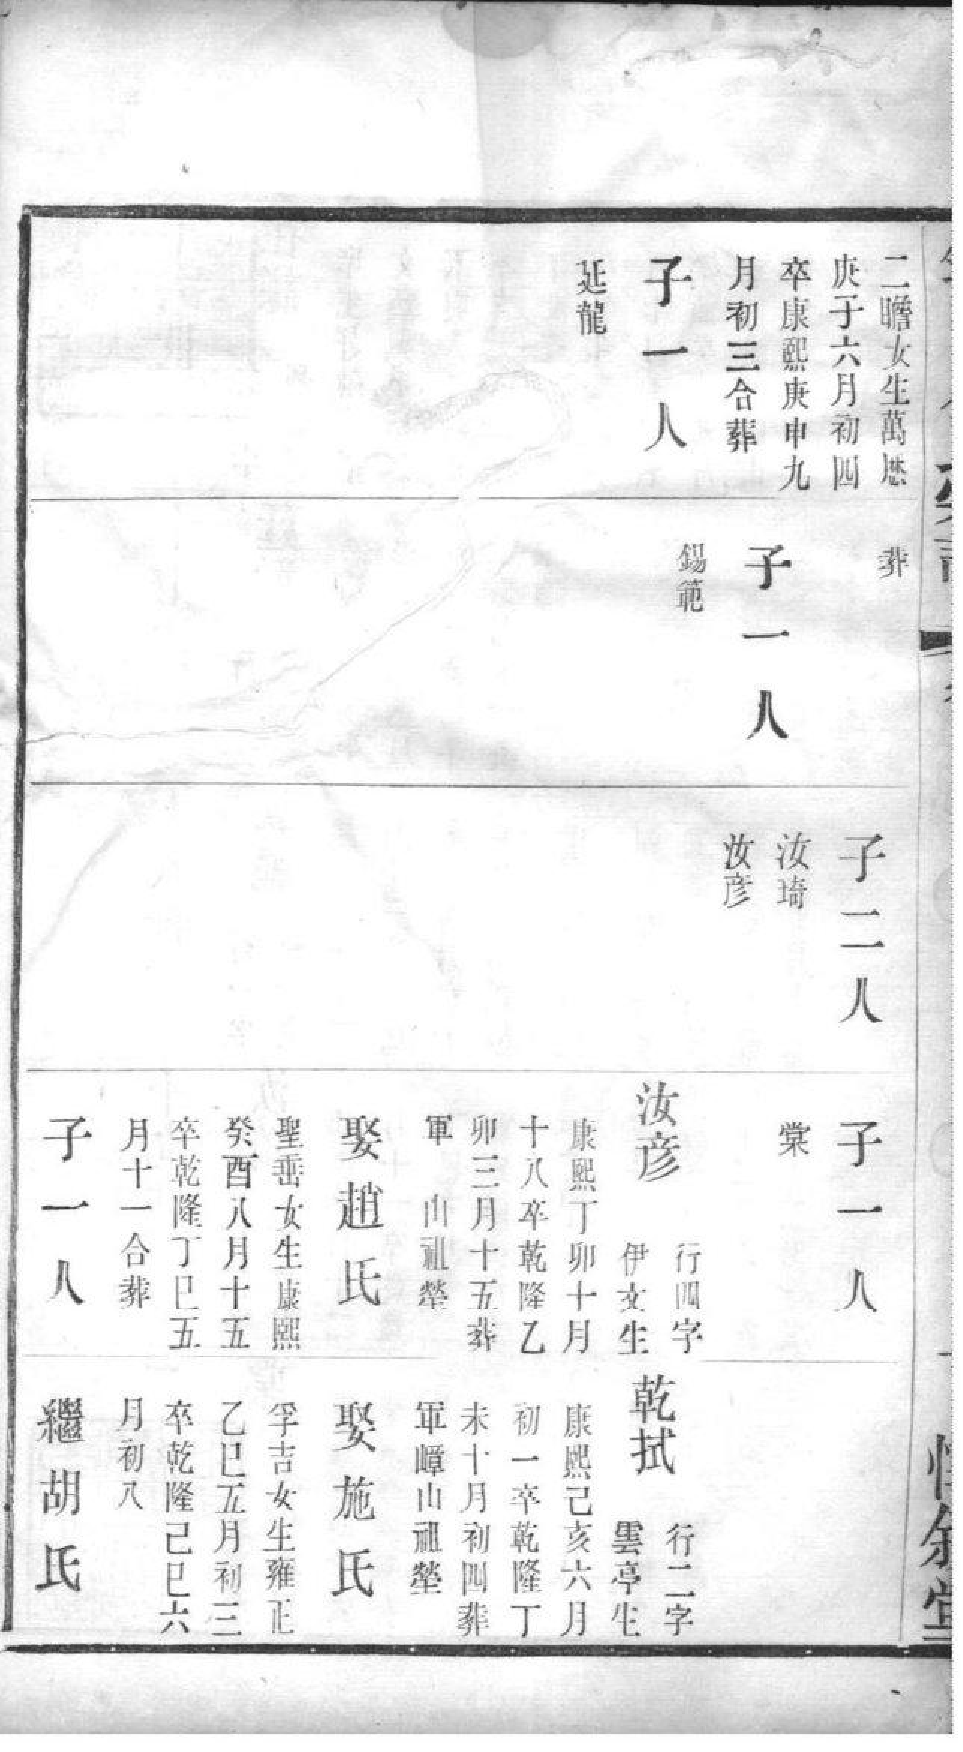 二瞻女生萬厯
庚子六月初四
卒康熙庚申九
月初三合葬
子一人
延龍
葬
子一人
錫範
子二人
汝琦
汝彦
子一人
棠
汝彦
行四字
伊文生
康熙丁卯十月
十八卒乾隆乙
卯三月十五葬
軍 山祖塋
娶趙氏
聖岳女生康熙
癸酉八月十五
卒乾隆丁巳五
月十一合葬
子一人
乾拭
行二字
雲亭生
康熙己亥六月
初一卒乾隆丁
未十月初四葬
軍嶂山祖塋
娶施氏
孚吉女生雍正
乙巳五月初三
卒乾隆己巳六
月初八
繼胡氏